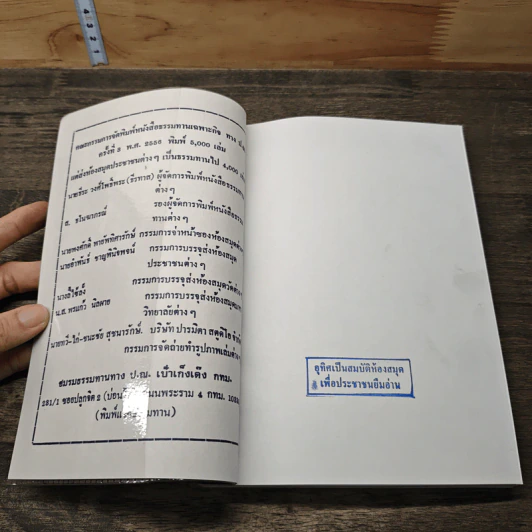 คณะกรรมการจัดพิมพ์หนังสือธรรมทานเฉพาะกิจ ทาง
ครั้งที่ 3 พ.ศ. 2556 พิมพ์ 5,000 เล่ม
แต่ส่งห้องสมุดประชาชนต่างๆ เป็นธรรมทานไป 4,000
นายธีระ วงศ์โพธิ์พระ (ธีรทาส) ผู้จัดการพิมพ์หนังสือธรรมทาน
ต่างๆ
รองผู้จัดการพิมพ์หนังสือธรรม
ส. ชโนฉาภรณ์
ทานต่างๆ
กรรมการจำหน่ายจองห้องสมุดต่าง
กรรมการบรรจุส่งห้องสมุด
ประชาชนต่างๆ
กรรมการบรรจุส่งห้องสมุดวัดต่างๆ
น.ส. พรแก้ว นิลผาย กรรมการบรรจุส่งห้องสมุด
วิทยาลัยต่างๆ
บริษัท ปารมิตา สตูดิโอ
กรรมการจัดถ่ายทำรูปภาพเล่มต่าง
ชมรมธรรมทานทาง ป.ณ. เบ๊าเก็งเต๊ง กทม.
251/1 ซอยปลูกจิต 2 พระราม 4 กทม.
อุทิศเป็นสมบัติห้องสมุด
เพื่อประชาชนยืมอ่าน
4
3
2
1